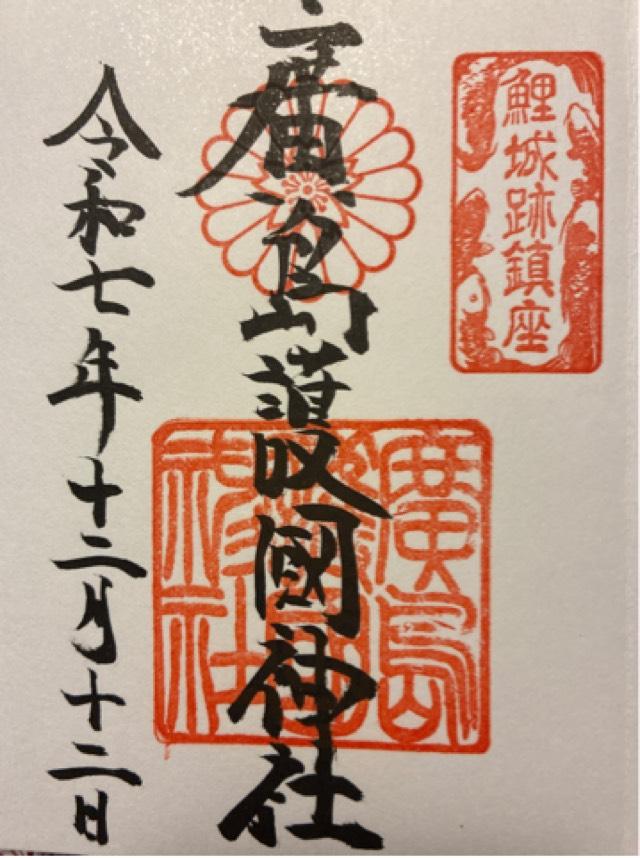 鯉城跡鎮座
廣島護國神社
廣島護國神社
令和七年十二月十二日